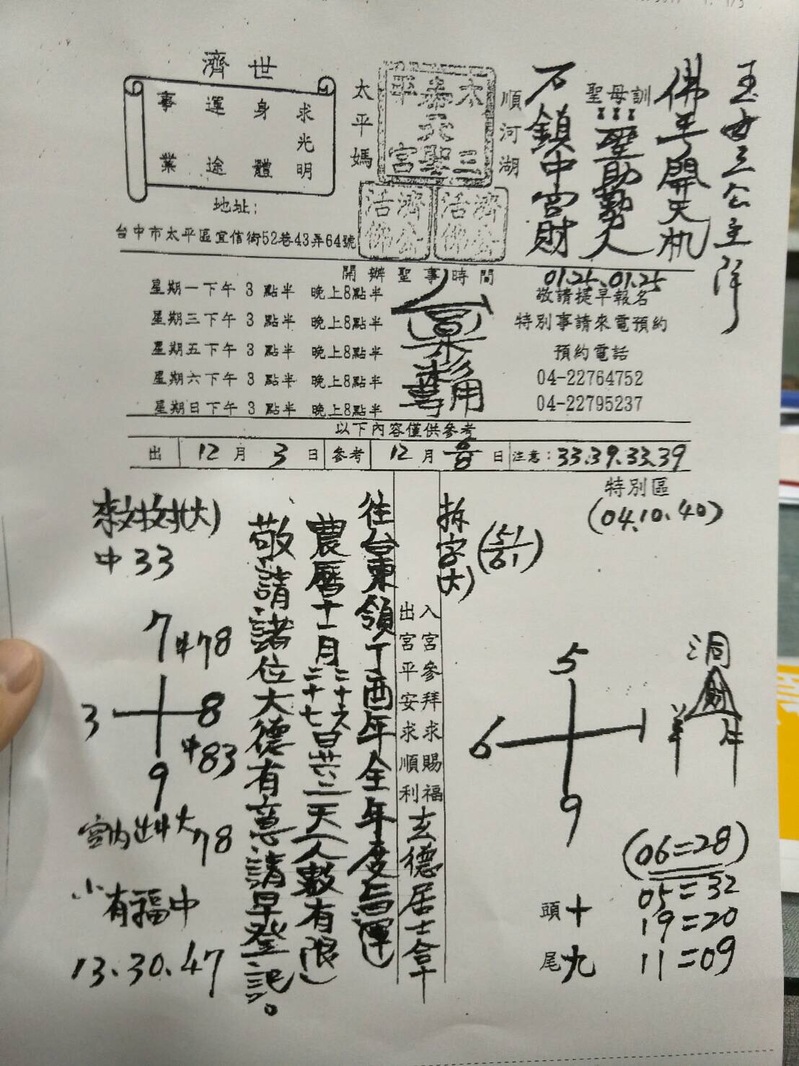 玉女三公主降
佛手開天机
聖母訓
聖助勢人
石鎮中宮財
順河湖
太嘉平
三天聖宮
濟公活佛
濟公活佛
太平媽
濟世
求光明
身體
運途
事業
地址:
台中市太平區宜信街52巷43弄64號
開辦聖事時間
01.25、01.25
星期一下午3點半 晚上8點半
星期三下午3點半 晚上8點半
星期五下午3點半 晚上8點半
星期六下午3點半 晚上8點半
星期日下午3點半 晚上8點半
用
敬請提早報名
特別事請來電預約
預約電話
04-22764752
04-22795237
以下內容僅供參考
出 12月3日 參考 12月 日 注意:33.39.33.39
特別區
(04.10.40)
拆字(大)
(51/61)
5
6 1
9
洞
財
羊
頭十
尾九
(06=28)
05=32
19=20
11=09
入宮參拜求賜福
出宮平安求順利
玄德居士拿
往台東領丁酉年全年度
農曆十一月二十六二十七日共二天(人數有限)
敬請諸位大德有意請早登記。
中33
7 中78
3 8
中83
9
宮內出中大78
小有福中
13、30、47